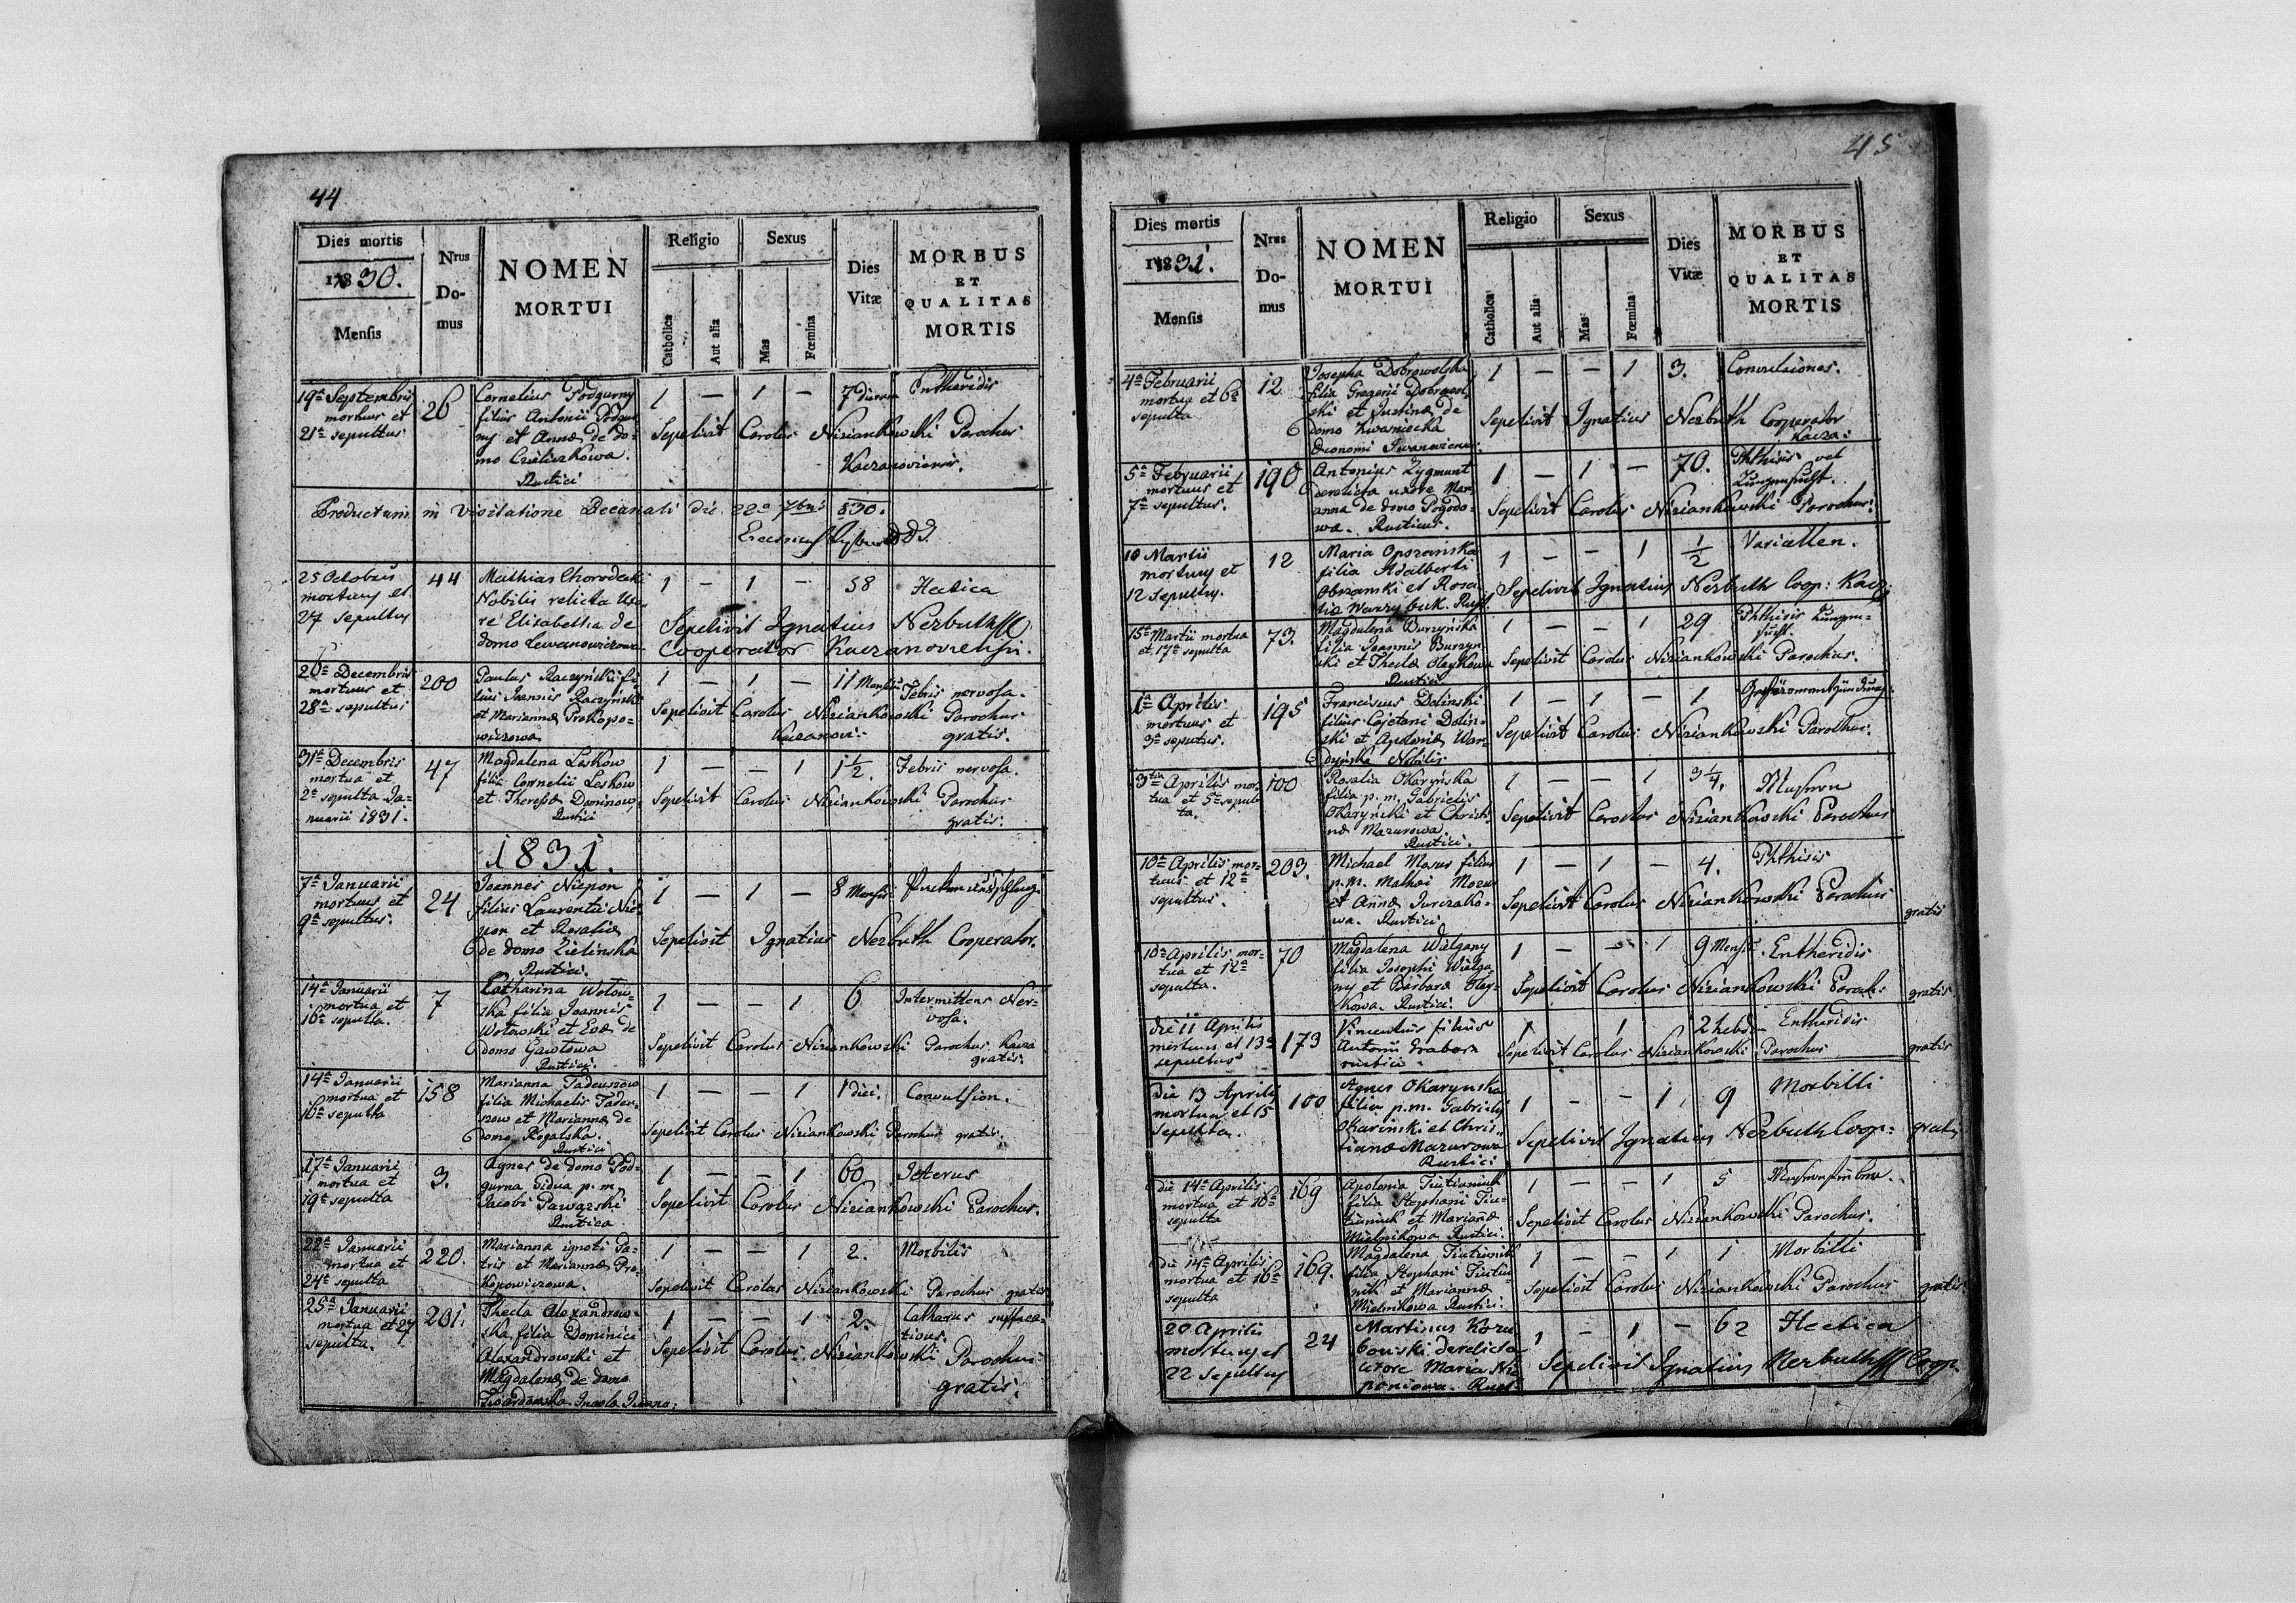 44
Dies mortis
1830.
Mensis
Nrus Do-
mus
NOMEN
MORTUI
Religio
Catholica
Aut alia
Sexus
Mas
Fœmina
Dies
Vitæ
MORBUS
ET
QUALITAS
MORTIS
19a Septembris
mortuus et
21a sepultus
26
Cornelius Podgurny
filius Antonii Podgur
ny et Annæ de do-
mo Czeliszkowa.
Rustici
1 — 1 — 7 dierum Entheridis
Sepelivit Carolus Niziankowski Parochus
Kaczanoviensis.
Productum in Visitatione Decanali die 22a 7bris 830.
25 Octobris
mortuus et
27 sepultus
44
Mathias Chorodecki
Nobilis relicta Uxo-
re Elisabetha de
domo Lewanowiczowa
1 — 1 — 58 Hectica
Sepelivit Ignatius Nerbuth
Cooperator Kaczanoviensis.
26a Decembris
mortuus et
28a sepultus
200
Paulus Raczyński fi-
lius Joannis Raczyński
et Mariannæ Prokopo-
wiczowa
1 — 1 — 11 Mensium Febris nervosa.
Sepelivit Carolus Niziankowski Parochus
Kaczanovi: gratis.
31a Decembris
mortua et
2a sepulta Ja-
nuarii 1831.
47
Magdalena Leskow
filia Cornelii Leskow
et Theressæ Daminow.
Rustici
1 — — 1 1½. Febris nervosa.
Sepelivit Carolus Niziankowski Parochus
gratis.
1831.
7a Januarii
mortuus et
9a sepultus.
24
Joannes Niepon
filius Laurentii Nie-
pon et Rosaliæ
de domo Zielinska
Rustici.
1 — 1 — 8 Mensis
Sepelivit Ignatius Nerbuth Cooperator.
14a Januarii
mortua et
16a sepulta.
7
Catharina Wotow-
ska filia Joannis
Wotowski et Evæ de
domo Gawtowa
Rustici.
1 — — 1 6 Intermittens Ner-
vosa.
Sepelivit Carolus Niziankowski Parochus Kacza
gratis.
14a Januarii
mortua et
16a sepulta
158
Marianna Tadeuszow
filia Michaelis Tadeu-
szow et Mariannæ de
domo Rogalska.
Rustici
1 — — 1 1 diei. Convulsion.
Sepelivit Carolus Niziankowski Parochus gratis.
17a Januarii
mortua et
19a sepulta
3.
Agnes de domo Pod-
gurna vidua p. m.
Jacobi Pawązski
Rustica
1 — — 1 60 Icterus
Sepelivit Carolus Niziankowski Parochus.
22a Januarii
mortua et
24a sepulta
220.
Marianna ignoti Pa-
tris et Mariannæ Pro-
kopowiczowa.
1 — — 1 2. Morbilis
Sepelivit Carolus Niziankowski Parochus gratis
25a Januarii
mortua et 27
sepulta.
201.
Thecla Alexandrow-
ska filia Dominici
Alexandrowski et
Magdalenæ de domo
1 — — 1 2. Catharus suffoca-
tivus.
Sepelivit Carolus Niziankowski Parochus
gratis.
45
Dies mortis
1831.
Mensis
Nrus
Do-
mus
NOMEN
MORTUI
Religio
Catholica
Aut alia
Sexus
Mas
Fœmina
Dies
Vitæ
MORBUS
ET
QUALITAS
MORTIS
4a Februarii
mortua et 6a
sepulta
12
Josepha Dobrowolska
filia Gregorii Dobrowol
ski et Justinæ de
domo Kwasniecka
Œconomi Iwanoviensis.
1 — — 1 3. Convulsiones.
Sepelivit Ignatius Nerbuth Cooperator
Kacza:
5a Februarii
mortuus et
7a sepultus.
190
Antonius Zygmunt
derelicta uxore Mari
anna de domo Pogodo-
wa. Rusticus.
1 — 1 — 70. Phthisis vel
Lungensucht.
Sepelivit Carolus Niziankowski Parochus.
10 Martii
mortuus et
12 Sepultus.
12
Maria Oporzanska
filia Adalberti
Obrzamski et Rosa
liæ Wawrzybuk. Rust.
1 — — 1 ½ Variællen.
Sepelivit Ignatius Nerbuth Coop: Kacz:
15a Martii mortua
et 17a sepulta
73.
Magdalena Burzyńska
filia Joannis Burzyn
ski et Theclæ Oleykowa
Rustici.
1 — — 1 29 Phthisis Lungen-
sucht.
Sepelivit Carolus Niziankowski Parochus.
1a Aprilis
mortuus et
3a sepultus.
195
Franciscus Dolinski
filius Cajetani Dolin-
ski et Apoloniæ Wan-
dyńska Nobilis
1 — 1 — 1
Sepelivit Carolus Niziankowski Parochus.
3tia Aprilis mor-
tua et 5a sepul-
ta.
100
Rosalia Okaryńska
filia p. m. Gabrielis
Okaryński et Christi
næ Mazurowa.
Rustici.
1 — — 1 3¼.
Sepelivit Carolus Niziankowski Parochus
10a Aprilis mor-
tuus et 12a
sepultus.
203.
Michael Mazur filius
p. m. Mathei Mazur
et Annæ Jurczako-
wa. Rustici
1 — 1 — 4. Phthisis
Sepelivit Carolus Niziankowski Parochus
gratis
10a Aprilis mor-
tua et 12a
sepulta.
70
Magdalena Wielgany
filia Josephi Wielga-
ny et Barbaræ Oley-
kowa. Rustici
1 — — 1 9 Mensi. Entheridis
Sepelivit Carolus Niziankowski Paroch: gratis
die 11 Aprilis
mortuus et 13a
sepultus
173
Vincentius filius
Antonii Grabara
rustici
1 1 2 hebd— Entheridis
Sepelivit Carolus Niziankowski Parochus gratis
Die 13 Aprilis
mortua et 15
Sepulta.
100
Agnes Okarynska
filia p. m. Gabrielis
Okarinski et Chris
tianæ Mazurowa
Rustici
1 — — 1 9 Morbilli
Sepelivit Ignatius Nerbuth Coop: gratis
die 14a Aprilis
mortua et 16a
sepulta
169
Apolonia Tiutiuniuk
filia Stephani Tiu-
tiuniuk et Mariannæ
Mielnikowa Rustici.
1 — — 1 5
Sepelivit Carolus Niziankowski Parochus.
die 14a Aprilis
mortua et 16a
sepulta
169.
Magdalena Tiutiunik
filia Stephani Tiutiu-
nik et Mariannæ
Mielnikowa Rustici.
1 — — 1 1 Morbilli
Sepelivit Carolus Niziankowski Parochus gratis
20 Aprilis
mortuus et
22 sepultus
24
Martinus Kozu
bowski derelicta
uxore Maria Nie
poniowa. Rust.
1 — 1 — 62 Hectica
Sepelivit Ignatius Nerbuth Coop.